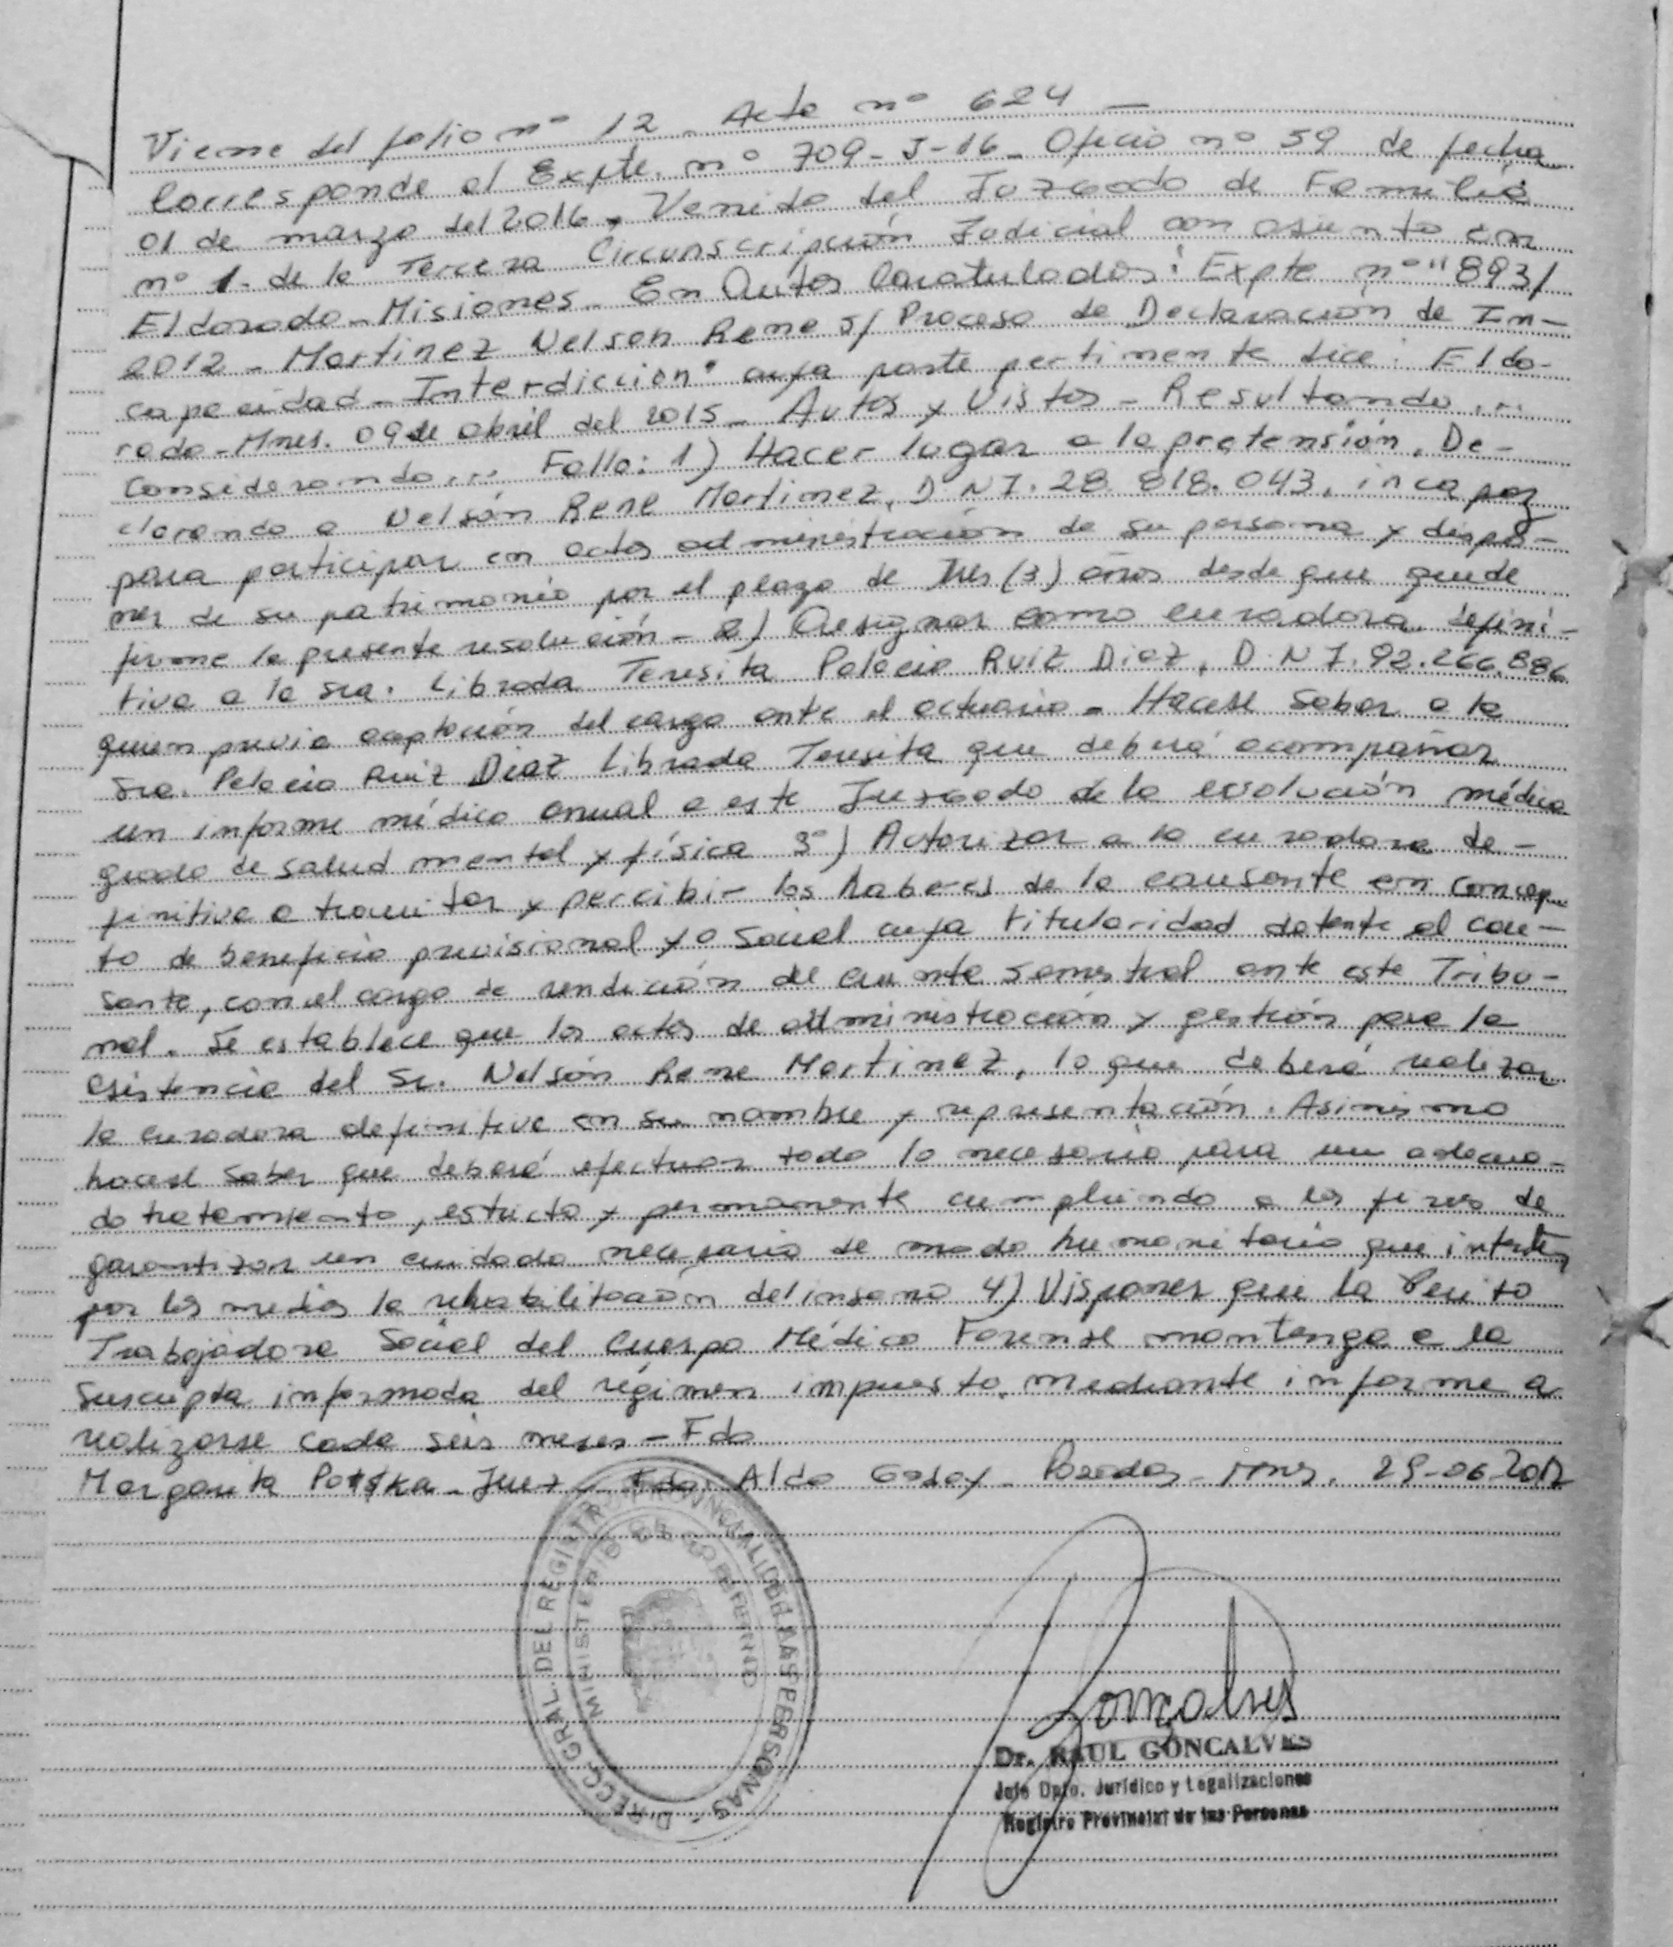 Viene del folio nº 12 - Acta nº 624 -
Corresponde al Expte. nº 709-J-16 - Oficio nº 59 de fecha
01 de marzo del 2016. Venido del Juzgado de Familia
nº 1. de la Tercera Circunscripción Judicial con asiento en
Eldorado - Misiones - En Autos Caratulados: Expte nº "893/
2012 - Martinez Nelson Rene s/ Proceso de Declaración de In-
capacidad - Interdiccion" cuya parte pertinente dice: Eldo-
rado - Mnes. 09 de abril del 2015 - Autos y Vistos - Resultando ...
Considerando ... Fallo: 1) Hacer lugar a la pretensión. De-
clarando a Nelsón Rene Martinez, D.N.I. 28.818.043, incapaz
para participar en actos administración de su persona y dispo-
ner de su patrimonio por el plazo de Tres (3) años desde que quede
firme la presente resolución - 2) Designar como curadora defini-
tiva a la sra. Librada Teresita Palacio Ruiz Diaz, D.N.I. 92.266.886
quien previa aceptación del cargo ante el actuario - Hacese saber a la
Sra. Palacio Ruiz Diaz Librada Teresita que deberá acompañar
un informe médico anual a este Juzgado de la evolución médica
grado de salud mental y física 3º) Autorizar a la curadora de-
finitiva a tramitar y percibir los haberes de la causante en concep
to de beneficio previsional y o social cuya titularidad detente el cau-
sante, con el cargo de rendición de cuenta semestral ante este Tribu-
nal. Se establece que los actos de administración y gestión para la
asistencia del Sr. Nelsón Rene Martinez, lo que deberá realizar
la curadora definitiva en su nombre y representación. Asimismo
hacese saber que deberá efectuar todo lo necesario para un adecua-
do tratamiento, estricto y permanente cumpliendo a los fines de
garantizar un cuidado necesario de modo humanitario que intente
por los medios la rehabilitación del insano 4) Disponer que la Perito
Trabajadora Social del Cuerpo Médico Forense mantenga a la
suscripta informada del régimen impuesto, mediante informe a
realizarse cada seis meses - Fdo
Margarita Potska - Juez - Fdo. Aldo Godoy - Posadas - Mnes.
DIRECC. GRAL. DEL REGISTRO PROVINCIAL DE LAS PERSONAS
MINISTERIO DE GOBIERNO
Gonçalves
Dr. RAUL GONCALVES
Jefe Dpto. Jurídico y Legalizaciones
Registro Provincial de las Personas